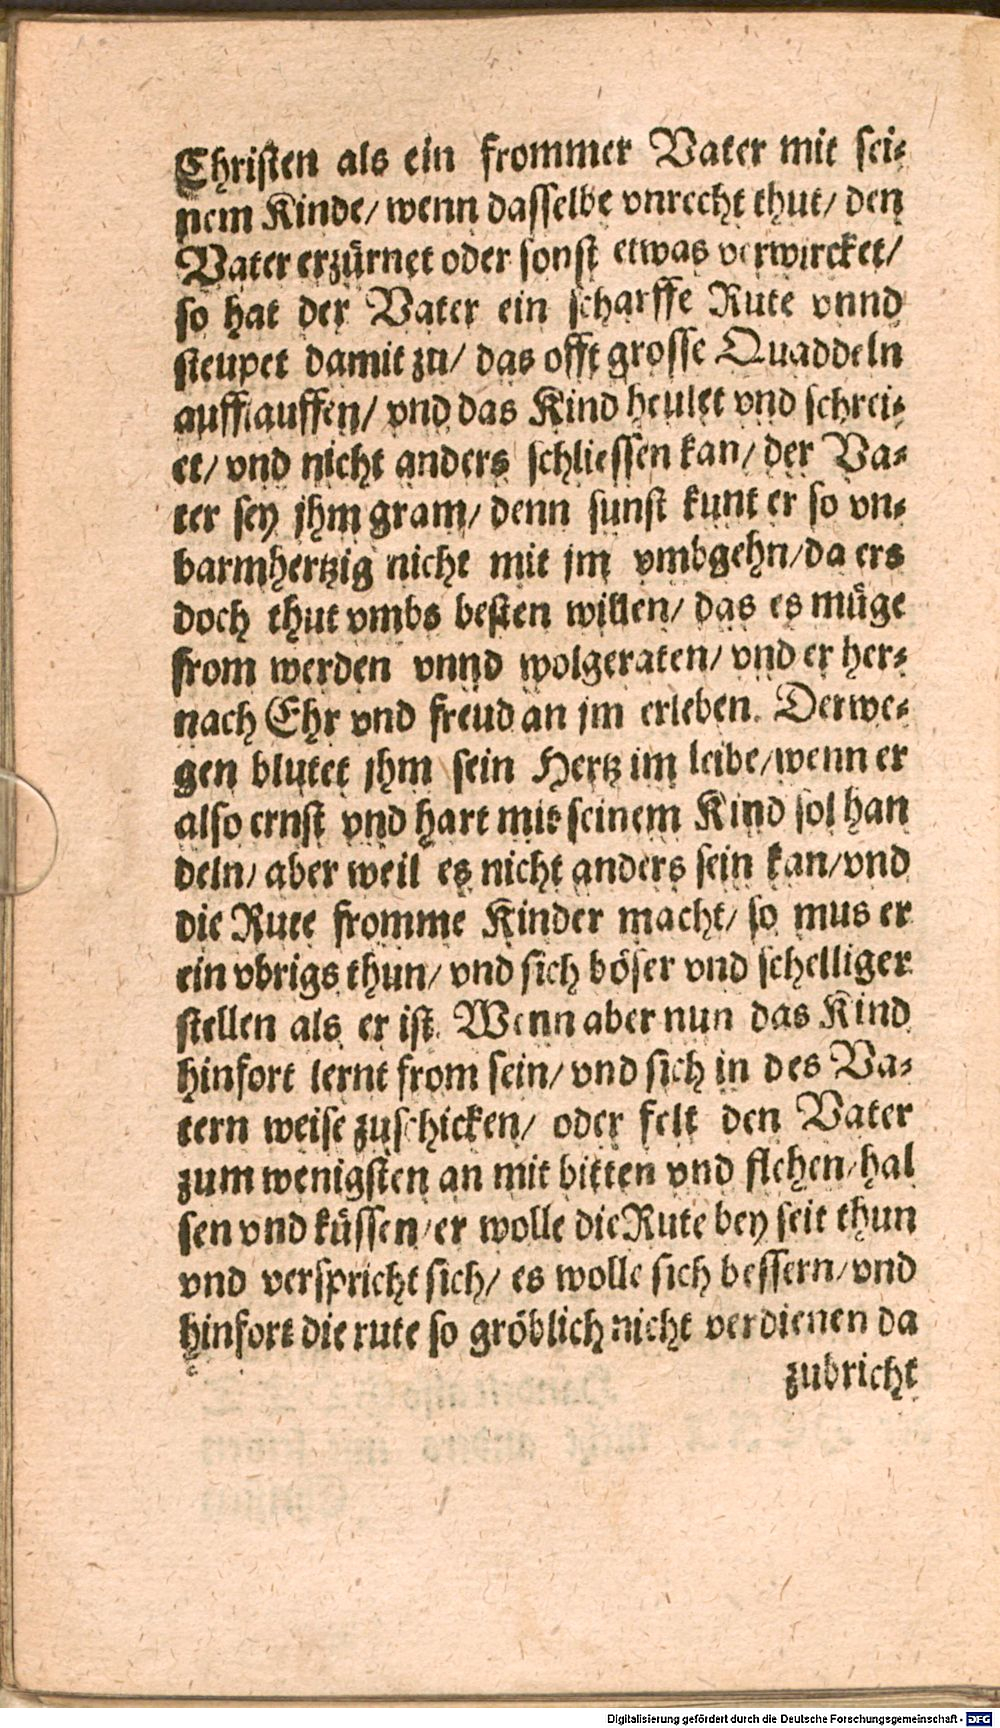 Christen als ein frommer Vater mit sei-
nem Kinde/ wenn dasselbe vnrecht thut/ den
Vater erzürnet oder sonst etwas verwircket/
so hat der Vater ein scharffe Rute vnnd
steupet damit zu/ das offt grosse Quaddeln
aufflauffen/ vnd das Kind heulet vnd schrei-
et/ vnd nicht anders schliessen kan/ der Va-
ter sey jhm gram/ denn sunst kunt er so vn-
barmhertzig nicht mit jm vmbgehn/ da ers
doch thut vmbs besten willen/ das es müge
from werden vnnd wolgeraten/ vnd er her-
nach Ehr vnd freud an jm erleben. Derwe-
gen blutet jhm sein Hertz im leibe/ wenn er
also ernst vnd hart mit seinem Kind sol han
deln/ aber weil es nicht anders sein kan/ vnd
die Rute fromme Kinder macht/ so mus er
ein vbrigs thun/ vnd sich böser vnd schelliger
stellen als er ist. Wenn aber nun das Kind
hinfort lernt from sein/ vnd sich in des Va-
tern weise zuschicken/ oder felt den Vater
zum wenigsten an mit bitten vnd flehen/ hal
sen vnd küssen/ er wolle die Rute bey seit thun
vnd verspricht sich/ es wolle sich bessern/ vnd
hinfort die rute so gröblich nicht verdienen da
zubricht
Digitalisierung gefördert durch die Deutsche Forschungsgemeinschaft - DFG